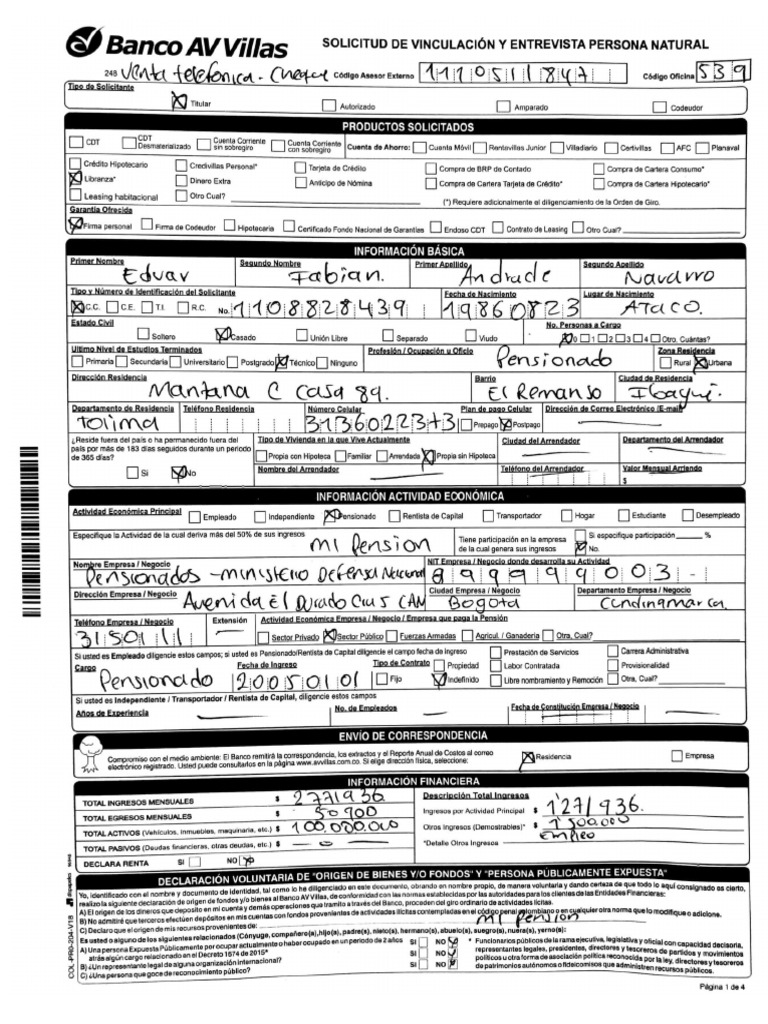 Banco AV Villas
SOLICITUD DE VINCULACIÓN Y ENTREVISTA PERSONA NATURAL
248 Venta telefonica - Cheque Código Asesor Externo 1110511847 Código Oficina 539
Tipo de Solicitante
Titular Autorizado Amparado Codeudor
PRODUCTOS SOLICITADOS
CDT CDT Desmaterializado Cuenta Corriente sin sobregiro Cuenta Corriente con sobregiro Cuenta de Ahorro: Cuenta Móvil Rentavillas Junior Villadiario Certivillas AFC Planaval
Crédito Hipotecario Credivillas Personal* Tarjeta de Crédito Compra de BRP de Contado Compra de Cartera Consumo*
Libranza* Dinero Extra Anticipo de Nómina Compra de Cartera Tarjeta de Crédito* Compra de Cartera Hipotecario*
Leasing habitacional Otro Cual? (*) Requiere adicionalmente el diligenciamiento de la Orden de Giro.
Garantía Ofrecida
Firma personal Firma de Codeudor Hipotecaria Certificado Fondo Nacional de Garantías Endoso CDT Contrato de Leasing Otro Cual?
INFORMACIÓN BÁSICA
Primer Nombre Segundo Nombre Primer Apellido Segundo Apellido
Eduar Fabian. Andrade Navarro
Tipo y Número de Identificación del Solicitante Fecha de Nacimiento Lugar de Nacimiento
C.C. C.E. T.I. R.C. No. 1108828439 19860823 Ataco.
Estado Civil No. Personas a Cargo
Soltero Casado Unión Libre Separado Viudo 0 1 2 3 4 Otro. Cuántas?
Ultimo Nivel de Estudios Terminados Profesión / Ocupación u Oficio Zona Residencia
Primaria Secundaria Universitario Postgrado Técnico Ninguno Pensionado Rural Urbana
Dirección Residencia Barrio Ciudad de Residencia
Mantana C Casa 89. El Remanso Ibagué.
Departamento de Residencia Teléfono Residencia Número Celular Plan de pago Celular Dirección de Correo Electrónico (E-mail)
Tolima 3136022373 Prepago Postpago
¿Reside fuera del país o ha permanecido fuera del país por más de 183 días seguidos durante un periodo de 365 días? Tipo de Vivienda en la que Vive Actualmente Ciudad del Arrendador Departamento del Arrendador
Propia con Hipoteca Familiar Arrendada Propia sin Hipoteca
Si No Nombre del Arrendador Teléfono del Arrendador Valor Mensual Arriendo
$
INFORMACIÓN ACTIVIDAD ECONÓMICA
Actividad Económica Principal Empleado Independiente Pensionado Rentista de Capital Transportador Hogar Estudiante Desempleado
Especifique la Actividad de la cual deriva más del 50% de sus ingresos mi Pension Tiene participación en la empresa de la cual genera sus ingresos Si especifique participación % No.
Nombre Empresa / Negocio NIT Empresa / Negocio donde desarrolla su Actividad
Pensionados - ministerio Defensa Nacional 899999003 -
Dirección Empresa / Negocio Ciudad Empresa / Negocio Departamento Empresa / Negocio
Avenida El Dorado CAM Bogota Cundinamarca
Teléfono Empresa / Negocio Extensión Actividad Económica Empresa / Negocio / Empresa que paga la Pensión
3150111 Sector Privado Sector Público Fuerzas Armadas Agricul. / Ganadería Otra, Cual?
Si usted es Empleado diligencie estos campos; si usted es Pensionado/Rentista de Capital diligencie el campo fecha de ingreso Prestación de Servicios Carrera Administrativa
Cargo Fecha de Ingreso Tipo de Contrato Propiedad Labor Contratada Provisionalidad
Pensionado 20050101 Fijo Indefinido Libre nombramiento y Remoción Otra, Cual?
Si usted es Independiente / Transportador / Rentista de Capital, diligencie estos campos
Años de Experiencia No. de Empleados Fecha de Constitución Empresa / Negocio
ENVÍO DE CORRESPONDENCIA
Compromiso con el medio ambiente: El Banco remitirá la correspondencia, los extractos y el Reporte Anual de Costos al correo electrónico registrado. Usted puede consultarlos en la página www.avvillas.com.co. Si elige dirección física, seleccione: Residencia Empresa
INFORMACIÓN FINANCIERA
TOTAL INGRESOS MENSUALES $ 2771936 Descripción Total Ingresos
TOTAL EGRESOS MENSUALES $ 50900 Ingresos por Actividad Principal $ 1271936.
TOTAL ACTIVOS (Vehículos, inmuebles, maquinaria, etc.) $ 100.000.000 Otros Ingresos (Demostrables)* $ 1500.000
TOTAL PASIVOS (Deudas financieras, otras deudas, etc.) $ - 0 - *Detalle Otros Ingresos Empleo
DECLARA RENTA SI NO
DECLARACIÓN VOLUNTARIA DE "ORIGEN DE BIENES Y/O FONDOS" Y "PERSONA PÚBLICAMENTE EXPUESTA"
Yo, identificado con el nombre y documento de identidad, tal como lo he diligenciado en este documento, obrando en nombre propio, de manera voluntaria y dando certeza de que todo lo aquí consignado es cierto, realizo la siguiente declaración de origen de fondos y/o bienes al Banco AV Villas, de conformidad con las normas establecidas por las autoridades para los clientes de las Entidades Financieras.
A) El origen de los dineros que deposito en mi cuenta y demás operaciones que tramito a través del Banco, proceden del giro ordinario de actividades lícitas.
B) No admitiré que terceros efectúen depósitos en mis cuentas con fondos provenientes de actividades ilícitas contempladas en el código penal colombiano o en cualquier otra norma que lo modifique o adicione.
C) Declaro que el origen de mis recursos provenientes de: mi Pension
Es usted o alguno de los siguientes relacionados (Cónyuge, compañero(a),hijo(a), padre(s), nieto(s), hermano(s), abuelo(s), suegro(s), nuera(s), yerno(s):
A) Una persona Expuesta Públicamente por ocupar actualmente o haber ocupado en un periodo de 2 años atrás algún cargo relacionado en el Decreto 1674 de 2015* SI NO
B) ¿Un representante legal de alguna organización internacional? SI NO
C) ¿Una persona que goce de reconocimiento público? SI NO
* Funcionarios públicos de la rama ejecutiva, legislativa y oficial con capacidad decisoria, representantes legales, presidentes, directores y tesoreros de partidos y movimientos políticos u otra forma de asociación política reconocida por la ley, directores y tesoreros de patrimonios autónomos o fideicomisos que administren recursos públicos.
COL-PR0-204-V18
Página 1 de 4